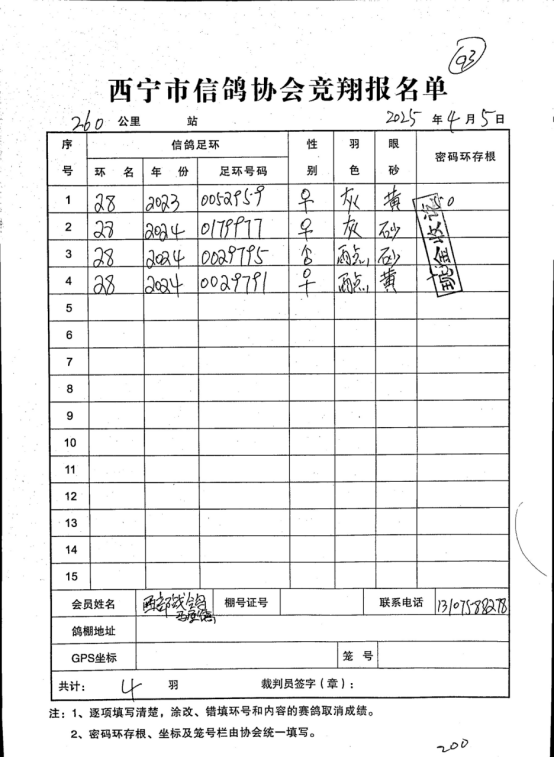 93
西宁市信鸽协会竞翔报名单
260 公里 站 2025 年 4 月 5 日
序号 信鸽足环 性别 羽色 眼砂 密码环存根
环名 年份 足环号码
1 28 2023 0052959 ♀ 灰 黄
2 28 2024 0179977 ♀ 灰 砂
3 28 2024 0029795 雨点 砂
4 28 2024 0029791 ♀ 雨点 黄
现金收讫
5
6
7
8
9
10
11
12
13
14
15
会员姓名 西部战鸽 棚号证号 联系电话 13107588278
鸽棚地址
GPS坐标 笼号
共计: 4 羽 裁判员签字(章):
注:1、逐项填写清楚,涂改、错填环号和内容的赛鸽取消成绩。
2、密码环存根、坐标及笼号栏由协会统一填写。
200